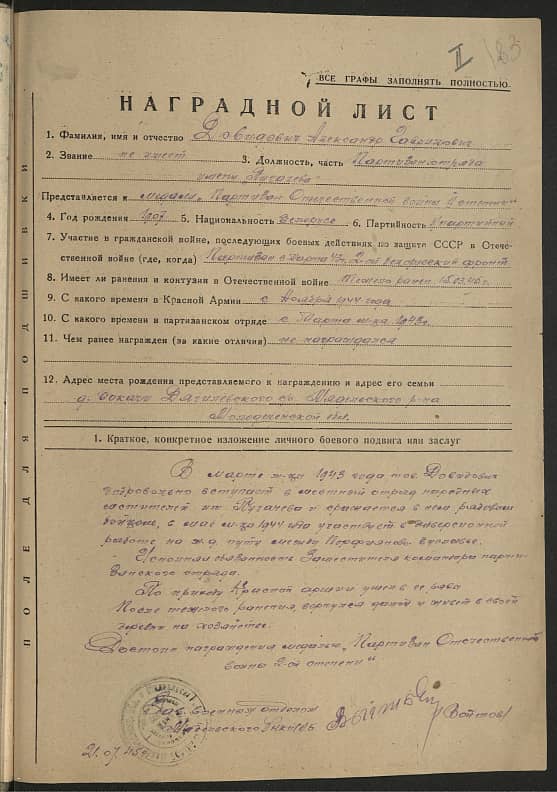 II 183
ВСЕ ГРАФЫ ЗАПОЛНЯТЬ ПОЛНОСТЬЮ.
НАГРАДНОЙ ЛИСТ
1. Фамилия, имя и отчество Давидович Александр
2. Звание не имеет 3. Должность, часть Партизан отряда
имени Пугачева
Представляется к медали „Партизан Отечественной войны
4. Год рождения 1907 5. Национальность Белорус 6. Партийность
7. Участие в гражданской войне, последующих боевых действиях по защите СССР в Отече-
ственной войне (где, когда) Партизан с Марта 43г. 2-ой Белорусский фронт
8. Имеет ли ранения и контузии в Отечественной войне Тяжело ранен
9. С какого времени в Красной Армии с Ноября 1944 года
10. С какого времени в партизанском отряде с Марта м-ца 1943г.
11. Чем ранее награжден (за какие отличия) не награждался
12. Адрес места рождения представляемого к награждению и адрес его семьи
д. Мядельского р-на
Молодечненской обл.
1. Краткое, конкретное изложение личного боевого подвига или заслуг
В марте м-це 1943 года тов. Давидович
добровольно вступает в местный отряд народных
мстителей им. Пугачева и сражается в нем рядовым
бойцом, в мае м-ца 1944 года участвует в диверсионной
работе на ж.д. пути
Исполнял обязанность Заместителя командира парти-
занского отряда.
По приходу Красной армии ушел в ее ряды
После тяжелого ранения, вернулся домой и живет в своей
деревни на хозяйстве.
Достоин награждения медалью „Партизан Отечественной
войны 2-ой степени"
Зав. военным отделом
Мядельского
21.07.45
ПОЛЕ ДЛЯ ПОДШИВКИ